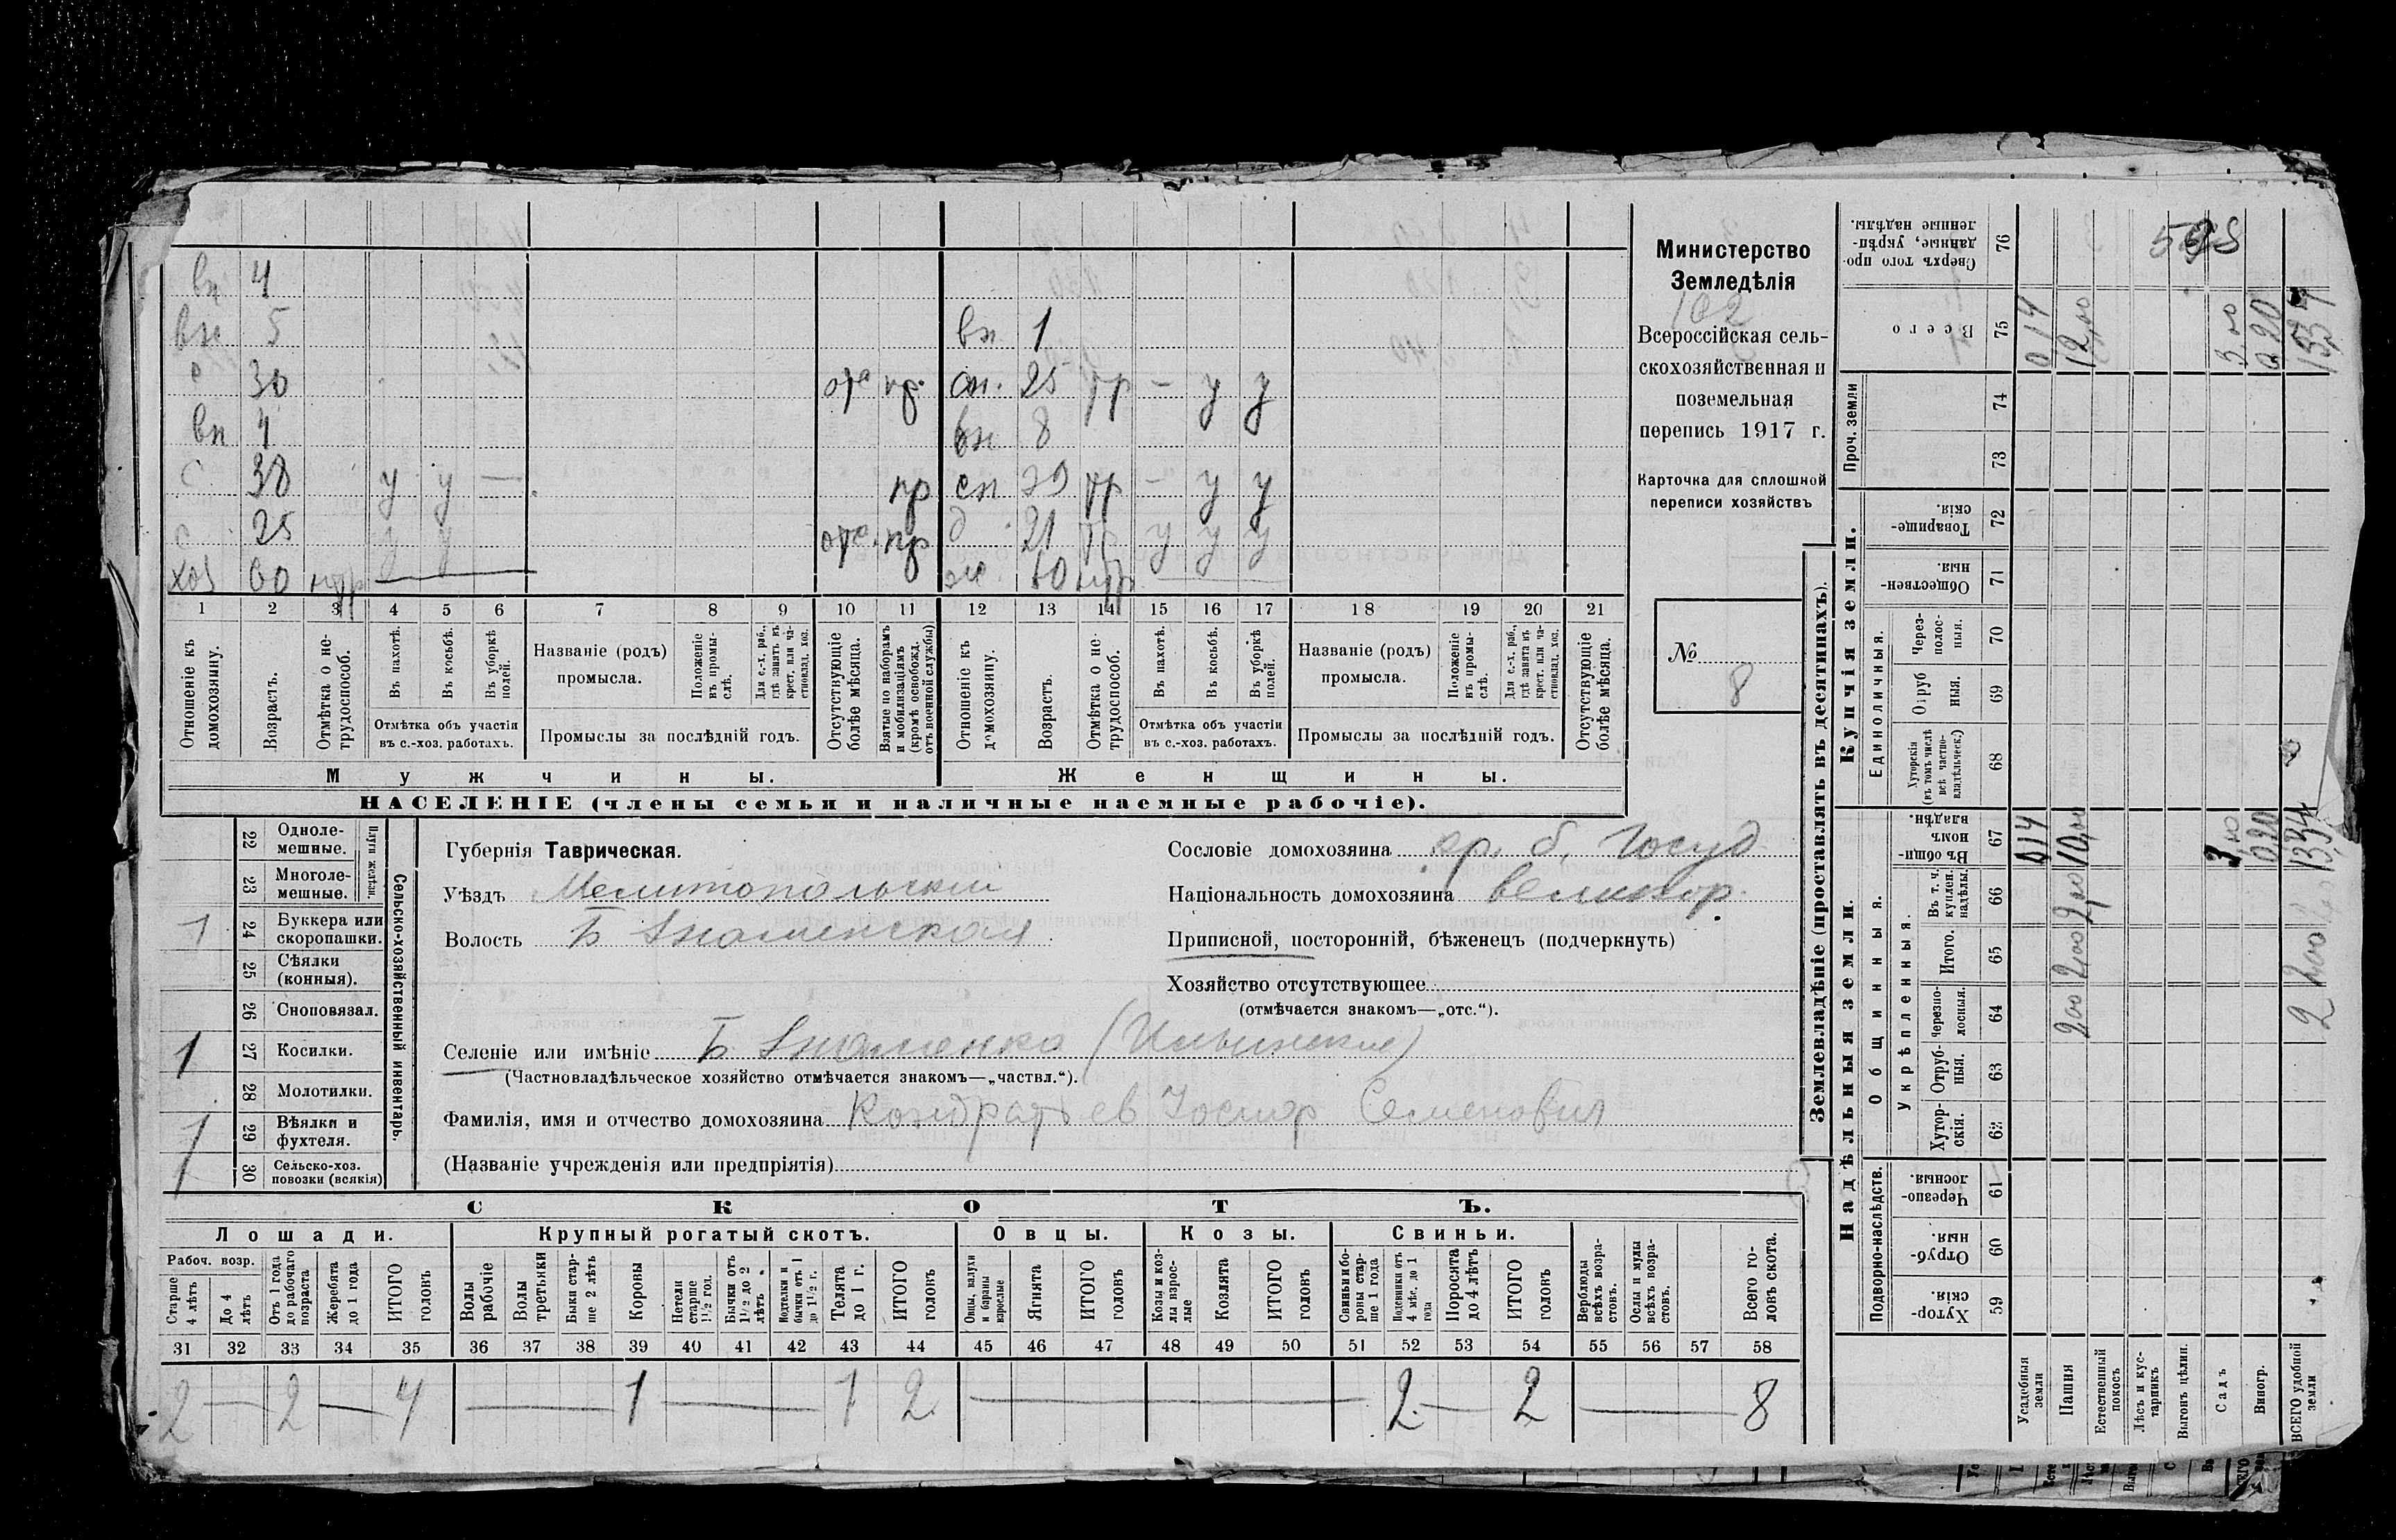 вн 4
вн 5 вн 1
с 30 отс пр. сн. 25 тр – у у
вн 4 вн 8
с 38 у у — пр сн 39 тр – у у
с 25 у у отс. пр д 21 тр у у у
хоз 60 нтр ж. 60 нтр
1 2 3 4 5 6 7 8 9 10 11 12 13 14 15 16 17 18 19 20 21
Отношеніе къ домохозяину.
Возрастъ.
Отмѣтка о нетрудоспособ.
Въ пахотѣ.
Въ косьбѣ.
Въ уборкѣ полей.
Отмѣтка объ участіи въ с.-хоз. работахъ.
Названіе (родъ) промысла.
Положеніе въ промыслѣ.
Для с.-х. раб., гдѣ занятъ въ крест. или частновлад. хоз.
Промыслы за послѣдній годъ.
Отсутствующіе болѣе мѣсяца.
Взятые по наборамъ и мобилизаціямъ (кромѣ освобожд. отъ военной службы)
Отношеніе къ домохозяину.
Возрастъ.
Отмѣтка о нетрудоспособ.
Въ пахотѣ.
Въ косьбѣ.
Въ уборкѣ полей.
Отмѣтка объ участіи въ с.-хоз. работахъ.
Названіе (родъ) промысла.
Положеніе въ промыслѣ.
Для с.-х. раб., гдѣ занята въ крест. или частновлад. хоз.
Промыслы за послѣдній годъ.
Отсутствующіе болѣе мѣсяца.
Мужчины. Женщины.
НАСЕЛЕНІЕ (члены семьи и наличные наемные рабочіе).
Министерство
Земледѣлія
102
Всероссійская сель-
скохозяйственная и
поземельная
перепись 1917 г.
Карточка для сплошной
переписи хозяйствъ
№
8
22 Одноле-мешные.
23 Многоле-мешные.
Плуги желѣзн.
1 24 Буккера или скоропашки.
25 Сѣялки (конныя).
26 Сноповязал.
1 27 Косилки.
28 Молотилки.
1 29 Вѣялки и фухтеля.
1 30 Сельско-хоз. повозки (всякія)
Сельско-хозяйственный инвентарь.
Губернія Таврическая.
Уѣздъ Мелитопольскій
Волость Б Знаменская
Сословіе домохозяина кр. б. госуд
Національность домохозяина великор.
Приписной, посторонній, бѣженецъ (подчеркнуть)
Хозяйство отсутствующее
(отмѣчается знакомъ—„отс.“).
Селеніе или имѣніе Б. Знаменка (Ильинская)
(Частновладѣльческое хозяйство отмѣчается знакомъ—„частвл.“).
Фамилія, имя и отчество домохозяина Кондратьев Иосиф Семенович
(Названіе учрежденія или предпріятія)
СКОТЪ.
Лошади. Крупный рогатый скотъ. Овцы. Козы. Свиньи.
Рабоч. возр.
Старше 4 лѣтъ
До 4 лѣтъ
Отъ 1 года до рабочаго возраста
Жеребята до 1 года
ИТОГО головъ
Волы рабочіе
Волы третьяки
Быки старше 2 лѣтъ
Коровы
Нетели старше 1½ год.
Бычки отъ 1½ до 2 лѣтъ
Подтелки и бычки отъ 1 до 1½ г.
Телята до 1 г.
ИТОГО головъ
Овцы, валухи и бараны взрослые
Ягнята
ИТОГО головъ
Козы и козлы взрослые
Козлята
ИТОГО головъ
Свиньи и бороны старше 1 года
Подсвинки отъ 4 мѣс. до 1 года
Поросята до 4 лѣтъ
ИТОГО головъ
Верблюды всѣхъ возрастовъ.
Ослы и мулы всѣхъ возрастовъ.
Всего головъ скота.
31 32 33 34 35 36 37 38 39 40 41 42 43 44 45 46 47 48 49 50 51 52 53 54 55 56 57 58
2 — 2 — 4 — 1 — 1 2 — 2 — 2 — 8
Землевладѣніе (проставлять въ десятинахъ).
Надѣльныя земли. Купчія земли. Проч. земли
Подворно-наслѣдств.
Общинныя.
Укрѣпленныя.
Единоличныя.
Хуторскія. 59
Отрубныя. 60
Черезполосныя. 61
Хуторскія. 62
Отрубныя. 63
Черезполосныя. 64
Итого. 65
Въ т. ч. куплен. надѣлы. 66
Въ общинномъ владѣн. 67
Хуторскія (въ томъ числѣ всѣ частновладѣльческ.) 68
Отрубныя. 69
Черезполосныя. 70
Общественныя. 71
Товарищескія. 72
73
74
Всего 75
Сверхъ того проданные, укрѣпленные надѣлы. 76
Усадебныя земли 014 014
Пашня 200 200 200 10,00 12,00
Естественный покосъ
Лѣсъ и кустарникъ
Выгонъ цѣлин.
Садъ 3,00
Виногр. 0,20 0,20
ВСЕГО удобной земли 2 200 1334